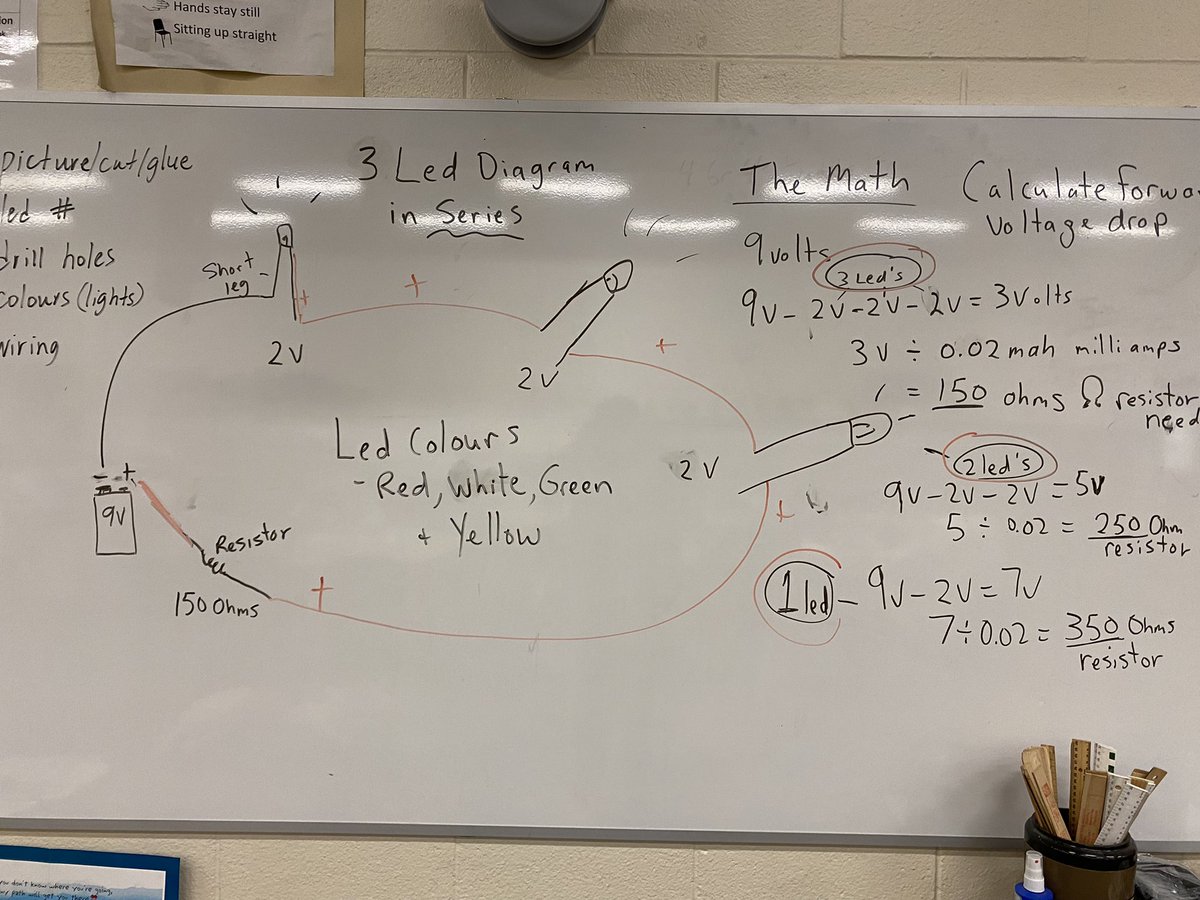 Hands stay still
Sitting up straight
Picture/cut/glue
led #
drill holes
colours (lights)
wiring
3 Led Diagram
in Series
Short leg
+
+
+
+
+
2V
2V
2V
Led Colours
- Red, White, Green
+ Yellow
- +
9V
Resistor
150 Ohms
The Math
Calculate forwa
voltage drop
9volts
3 Led's
9v - 2v - 2v - 2v = 3Volts
3v ÷ 0.02 mah milliamps
= 150 ohms Ω resistor
need
2 led's
9v - 2v - 2v = 5v
5 ÷ 0.02 = 250 Ohm
resistor
1 led - 9v - 2v = 7v
7 ÷ 0.02 = 350 Ohms
resistor
you don't know where you're going,
path will get you there